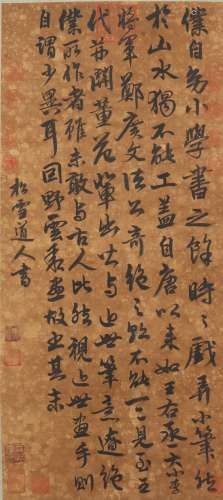 僕自幼小學書之餘時〻戲弄小筆然
於山水獨不能工蓋自唐以來如王右丞大小李
將軍鄭廣文諸公奇絕之跡不能一二見至五
代荊關董范輩出皆與近世筆意遼絕
僕所作者雖未敢與古人比然視近世畫手則
自謂少異耳因野雲求畫故書其末
松雪道人書